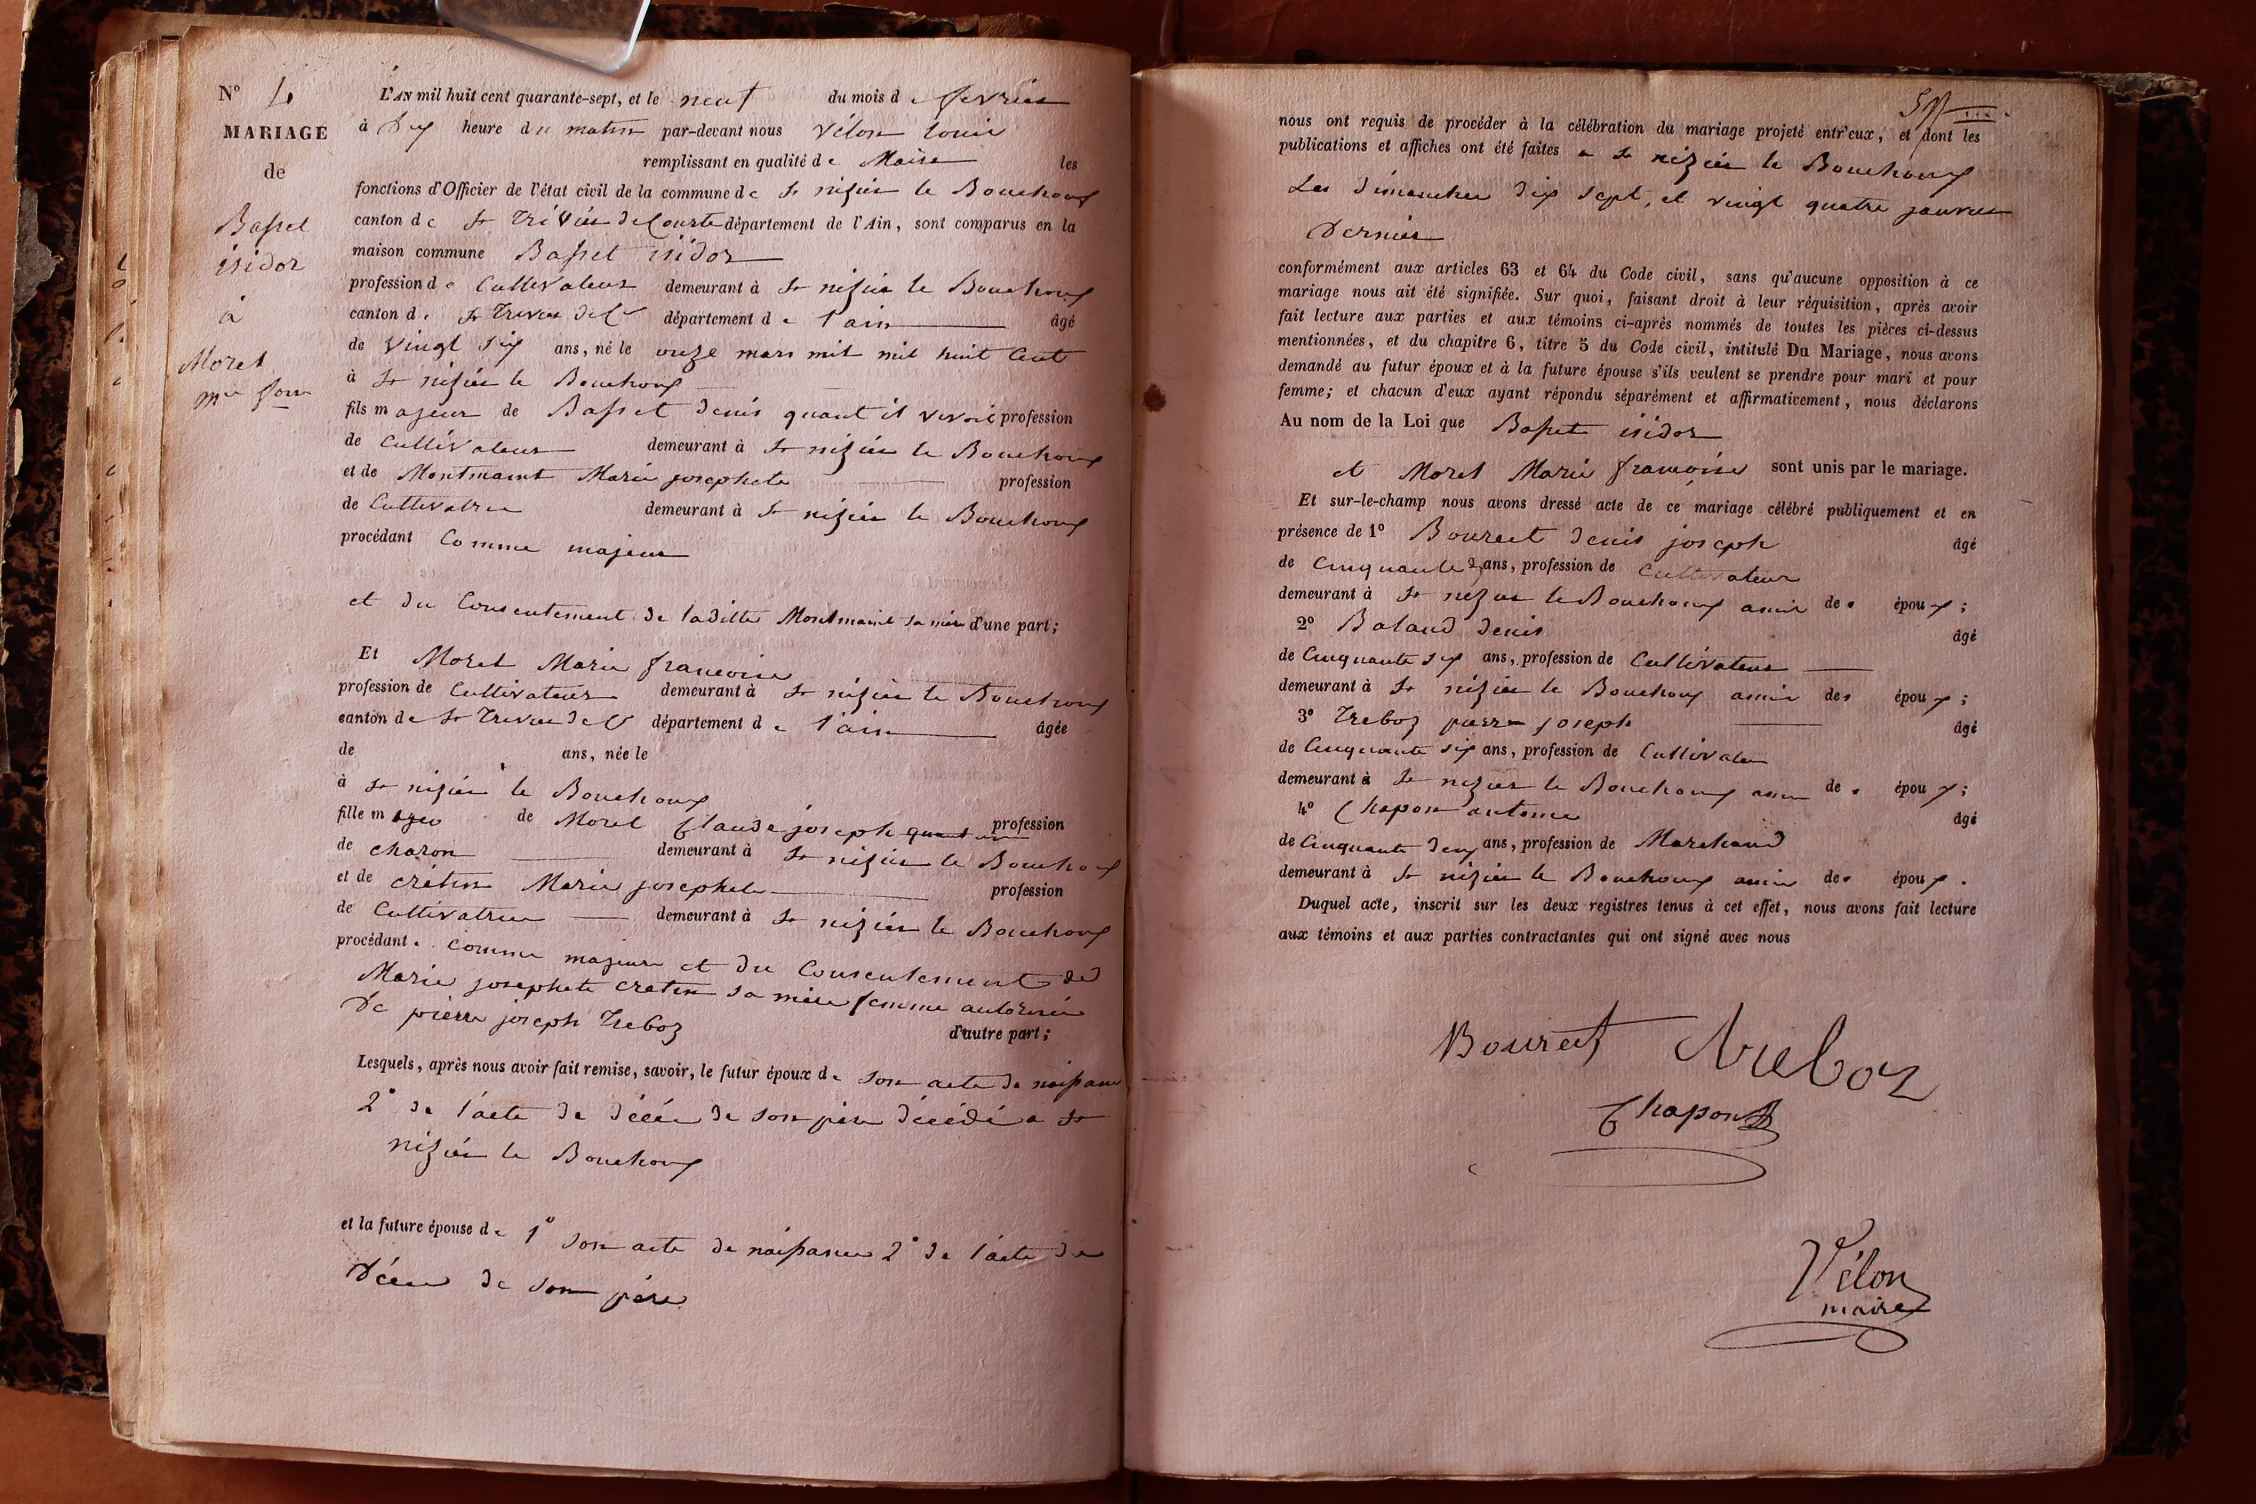 N° 4
MARIAGE
de
Basset
isidor
à
Moret
mie fçoise
L'AN mil huit cent quarante-sept, et le neuf du mois de fevrier
à Dix heure du matin par-devant nous Vélon Louis
remplissant en qualité de Maire les
fonctions d'Officier de l'état civil de la commune de St nizier le Bouchoux
canton de St Trivier de Courte département de l'Ain, sont comparus en la
maison commune Basset isidor
profession de Cultivateur demeurant à St nizier le Bouchoux
canton de St Trivier de C département de l'ain âgé
de vingt six ans, né le onze mars mil mil huit Cent
à St nizier le Bouchoux
fils majeur de Basset denis quant il vivoit profession
de Cultivateur demeurant à St nizier le Bouchoux
et de Montmaint Marie josephete profession
de Cultivatrice demeurant à St nizier le Bouchoux
procédant Comme majeur
et du Consentement de laditte Montmaint sa mère d'une part;
Et Moret Marie francoise
profession de Cultivateur demeurant à St nizier le Bouchoux
canton de St Trivier de C département de l'ain âgée
de ans, née le
à St nizier le Bouchoux
fille m de Moret Claude joseph profession
de charon demeurant à St nizier le Bouchoux
et de crétin Marie josephete profession
de Cultivatrice demeurant à St nizier le Bouchoux
procédant comme majeure et du Consentement de
Marie josephete cretin sa mère femme autorisée
De pierre joseph Treboz d'autre part;
Lesquels, après nous avoir fait remise, savoir, le futur époux de son acte de naissance
2° de l'acte de décée de son père décédé a St
nizier le Bouchoux
et la future épouse de 1° son acte de naissance 2° de l'acte de
Décée de son père
nous ont requis de procéder à la célébration du mariage projeté entr'eux, et dont les
publications et affiches ont été faites a St nizier le Bouchoux
Les dimanches dix sept, et vingt quatre janvier
Dernier
conformément aux articles 63 et 64 du Code civil, sans qu'aucune opposition à ce
mariage nous ait été signifiée. Sur quoi, faisant droit à leur réquisition, après avoir
fait lecture aux parties et aux témoins ci-après nommés de toutes les pièces ci-dessus
mentionnées, et du chapitre 6, titre 5 du Code civil, intitulé Du Mariage, nous avons
demandé au futur époux et à la future épouse s'ils veulent se prendre pour mari et pour
femme; et chacun d'eux ayant répondu séparément et affirmativement, nous déclarons
Au nom de la Loi que Basset isidor
et Moret Marie francoise sont unis par le mariage.
Et sur-le-champ nous avons dressé acte de ce mariage célébré publiquement et en
présence de 1° Bourcet denis joseph âgé
de Cinquante 2 ans, profession de Cultivateur
demeurant à St nizier le Bouchoux amis des époux;
2° Baland denis âgé
de Cinquante six ans, profession de Cultivateur
demeurant à St nizier le Bouchoux amis des époux;
3° Treboz pierre joseph âgé
de Cinquante six ans, profession de Cultivateur
demeurant à St nizier le Bouchoux amis des époux;
4° Chapon antoine âgé
de Cinquante deux ans, profession de Marchand
demeurant à St nizier le Bouchoux amis des époux.
Duquel acte, inscrit sur les deux registres tenus à cet effet, nous avons fait lecture
aux témoins et aux parties contractantes qui ont signé avec nous
Bourcet Treboz
Chapon
Vélon
maire